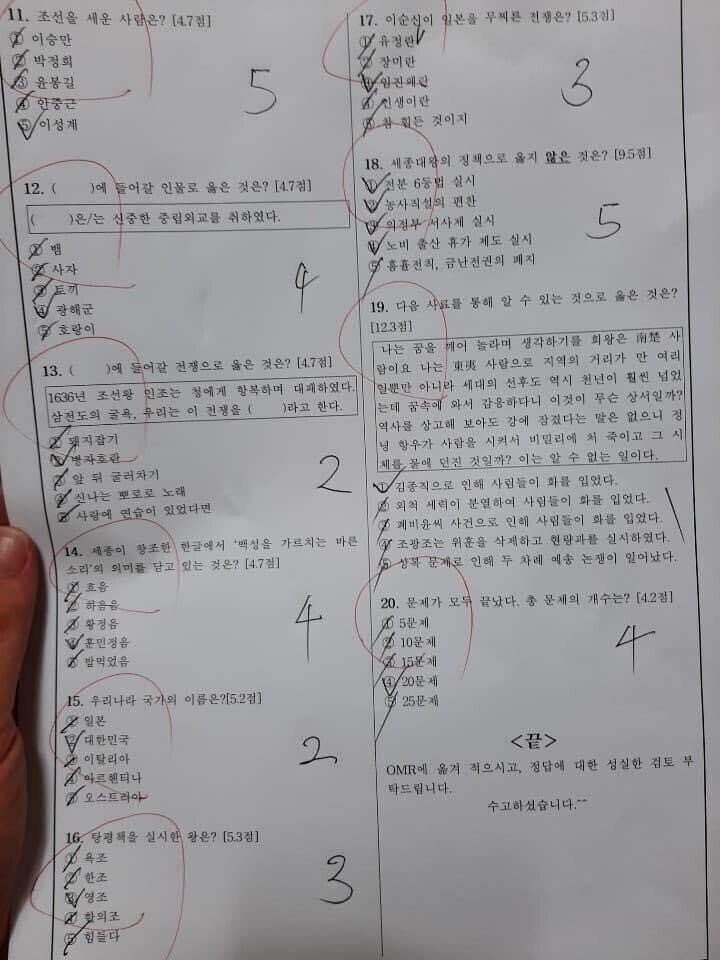 11. 조선을 세운 사람은? [4.7점]
① 이승만
② 박정희
③ 윤봉길
④ 안중근
⑤ 이성계
5
12. (      )에 들어갈 인물로 옳은 것은? [4.7점]
(      )은/는 신중한 중립외교를 취하였다.
① 뱀
② 사자
③ 토끼
④ 광해군
⑤ 호랑이
4
13. (      )에 들어갈 전쟁으로 옳은 것은? [4.7점]
1636년 조선왕 인조는 청에게 항복하며 대패하였다.
삼전도의 굴욕, 우리는 이 전쟁을 (      )라고 한다.
① 돼지잡기
② 병자호란
③ 앞 뒤 굴러차기
④ 신나는 뽀로로 노래
⑤ 사랑에 연습이 있었다면
2
14. 세종이 창조한 한글에서 '백성을 가르치는 바른
소리'의 의미를 담고 있는 것은? [4.7점]
① 흐음
② 하음음
③ 황정음
④ 훈민정음
⑤ 밥먹었음
4
15. 우리나라 국가의 이름은?[5.2점]
① 일본
② 대한민국
③ 이탈리아
④ 아르헨티나
⑤ 오스트리아
2
16. 탕평책을 실시한 왕은? [5.3점]
① 욕조
② 한조
③ 영조
④ 합의조
⑤ 힘들다
3
17. 이순신이 일본을 무찌른 전쟁은? [5.3점]
① 유정란
② 장미란
③ 임진왜란
④ 인생이란
⑤ 참 힘든 것이지
3
18. 세종대왕의 정책으로 옳지 않은 것은? [9.5점]
① 전분 6등법 실시
② 농사직설의 편찬
③ 의정부 서사제 실시
④ 노비 출산 휴가 제도 실시
⑤ 흠휼전칙, 금난전권의 폐지
5
19. 다음 사료를 통해 알 수 있는 것으로 옳은 것은?
[12.3점]
나는 꿈을 깨어 놀라며 생각하기를 회왕은 南楚 사
람이요 나는 東夷 사람으로 지역의 거리가 만 여리
일뿐만 아니라 세대의 선후도 역시 천년이 훨씬 넘었
는데 꿈속에 와서 감응하다니 이것이 무슨 상서일까?
역사를 상고해 보아도 강에 잠겼다는 말은 없으니 정
녕 항우가 사람을 시켜서 비밀리에 쳐 죽이고 그 시
체를 물에 던진 것일까? 이는 알 수 없는 일이다.
① 김종직으로 인해 사림들이 화를 입었다.
② 외척 세력이 분열하여 사림들이 화를 입었다.
③ 폐비윤씨 사건으로 인해 사림들이 화를 입었다.
④ 조광조는 위훈을 삭제하고 현량과를 실시하였다.
⑤ 상복 문제로 인해 두 차례 예송 논쟁이 일어났다.
1
20. 문제가 모두 끝났다. 총 문제의 개수는? [4.2점]
① 5문제
② 10문제
③ 15문제
④ 20문제
⑤ 25문제
4
<끝>
OMR에 옮겨 적으시고, 정답에 대한 성실한 검토 부
탁드립니다.
수고하셨습니다.^^